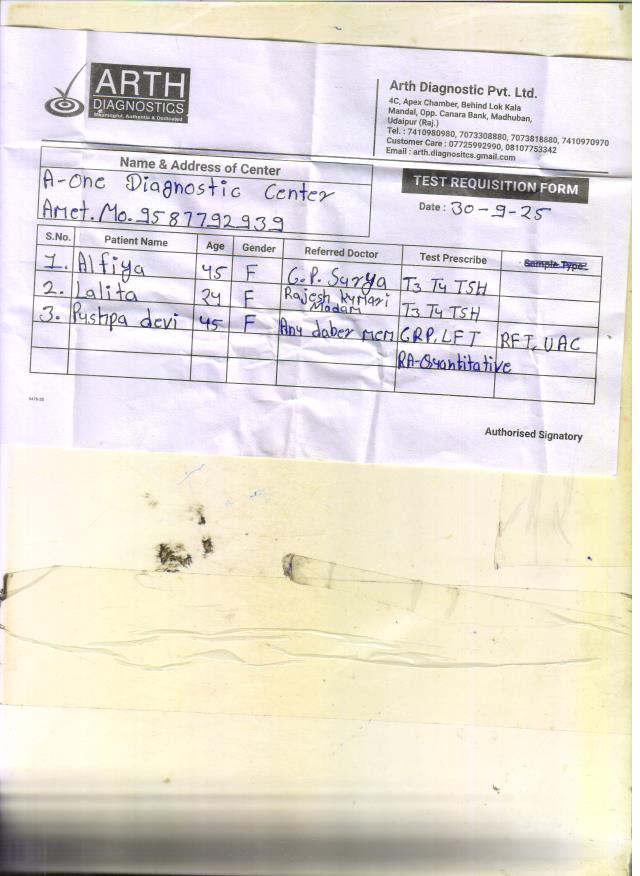 ARTH
DIAGNOSTICS
Meaningful, Authentic & Dedicated
Arth Diagnostic Pvt. Ltd.
4C, Apex Chamber, Behind Lok Kala
Mandal, Opp. Canara Bank, Madhuban,
Udaipur (Raj.)
Tel. : 7410980980, 7073308880, 7073818880, 7410970970
Customer Care : 07725992990, 08107753342
Email : arth.diagnositcs.gmail.com
Name & Address of Center
A-One Diagnostic Center
Amet. Mo. 9587792939
TEST REQUISITION FORM
Date : 30-9-25
S.No. Patient Name Age Gender Referred Doctor Test Prescribe Sample Type
1. Alfiya 45 F G.P. Surya T3 T4 TSH
2. Lalita 24 F Rajesh Kumari Madam T3 T4 TSH
3. Pushpa devi 45 F Any daber mem CRP, LFT RFT, UAC
RA-Quantitative
Authorised Signatory